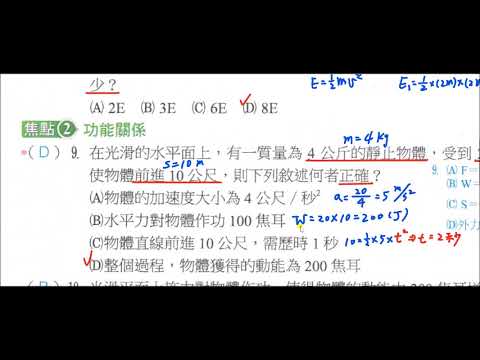 少？ E=½mv² E₁=½×(2m)×(2
(A) 2E (B) 3E (C) 6E ✓(D) 8E
焦點2 功能關係
m=4 kg
*(D) 9. 在光滑的水平面上，有一質量為 4 公斤的靜止物體，受到
S=10 m
使物體前進 10 公尺，則下列敘述何者正確？
(A)物體的加速度大小為 4 公尺／秒² a=20/4=5 m/s²
(B)水平力對物體作功 100 焦耳 W=20×10=200 (J)
(C)物體直線前進 10 公尺，需歷時 1 秒 10=½×5×t²⇒t=2秒
✓(D)整個過程，物體獲得的動能為 200 焦耳
9. (A) F=
(B) W=
(C) S=
(D)外力
(B) 10.